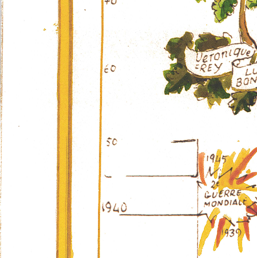 70
Véronique
FREY
LU
BON
60
50
1945
2e
GUERRE
MONDIALE
1940
1939